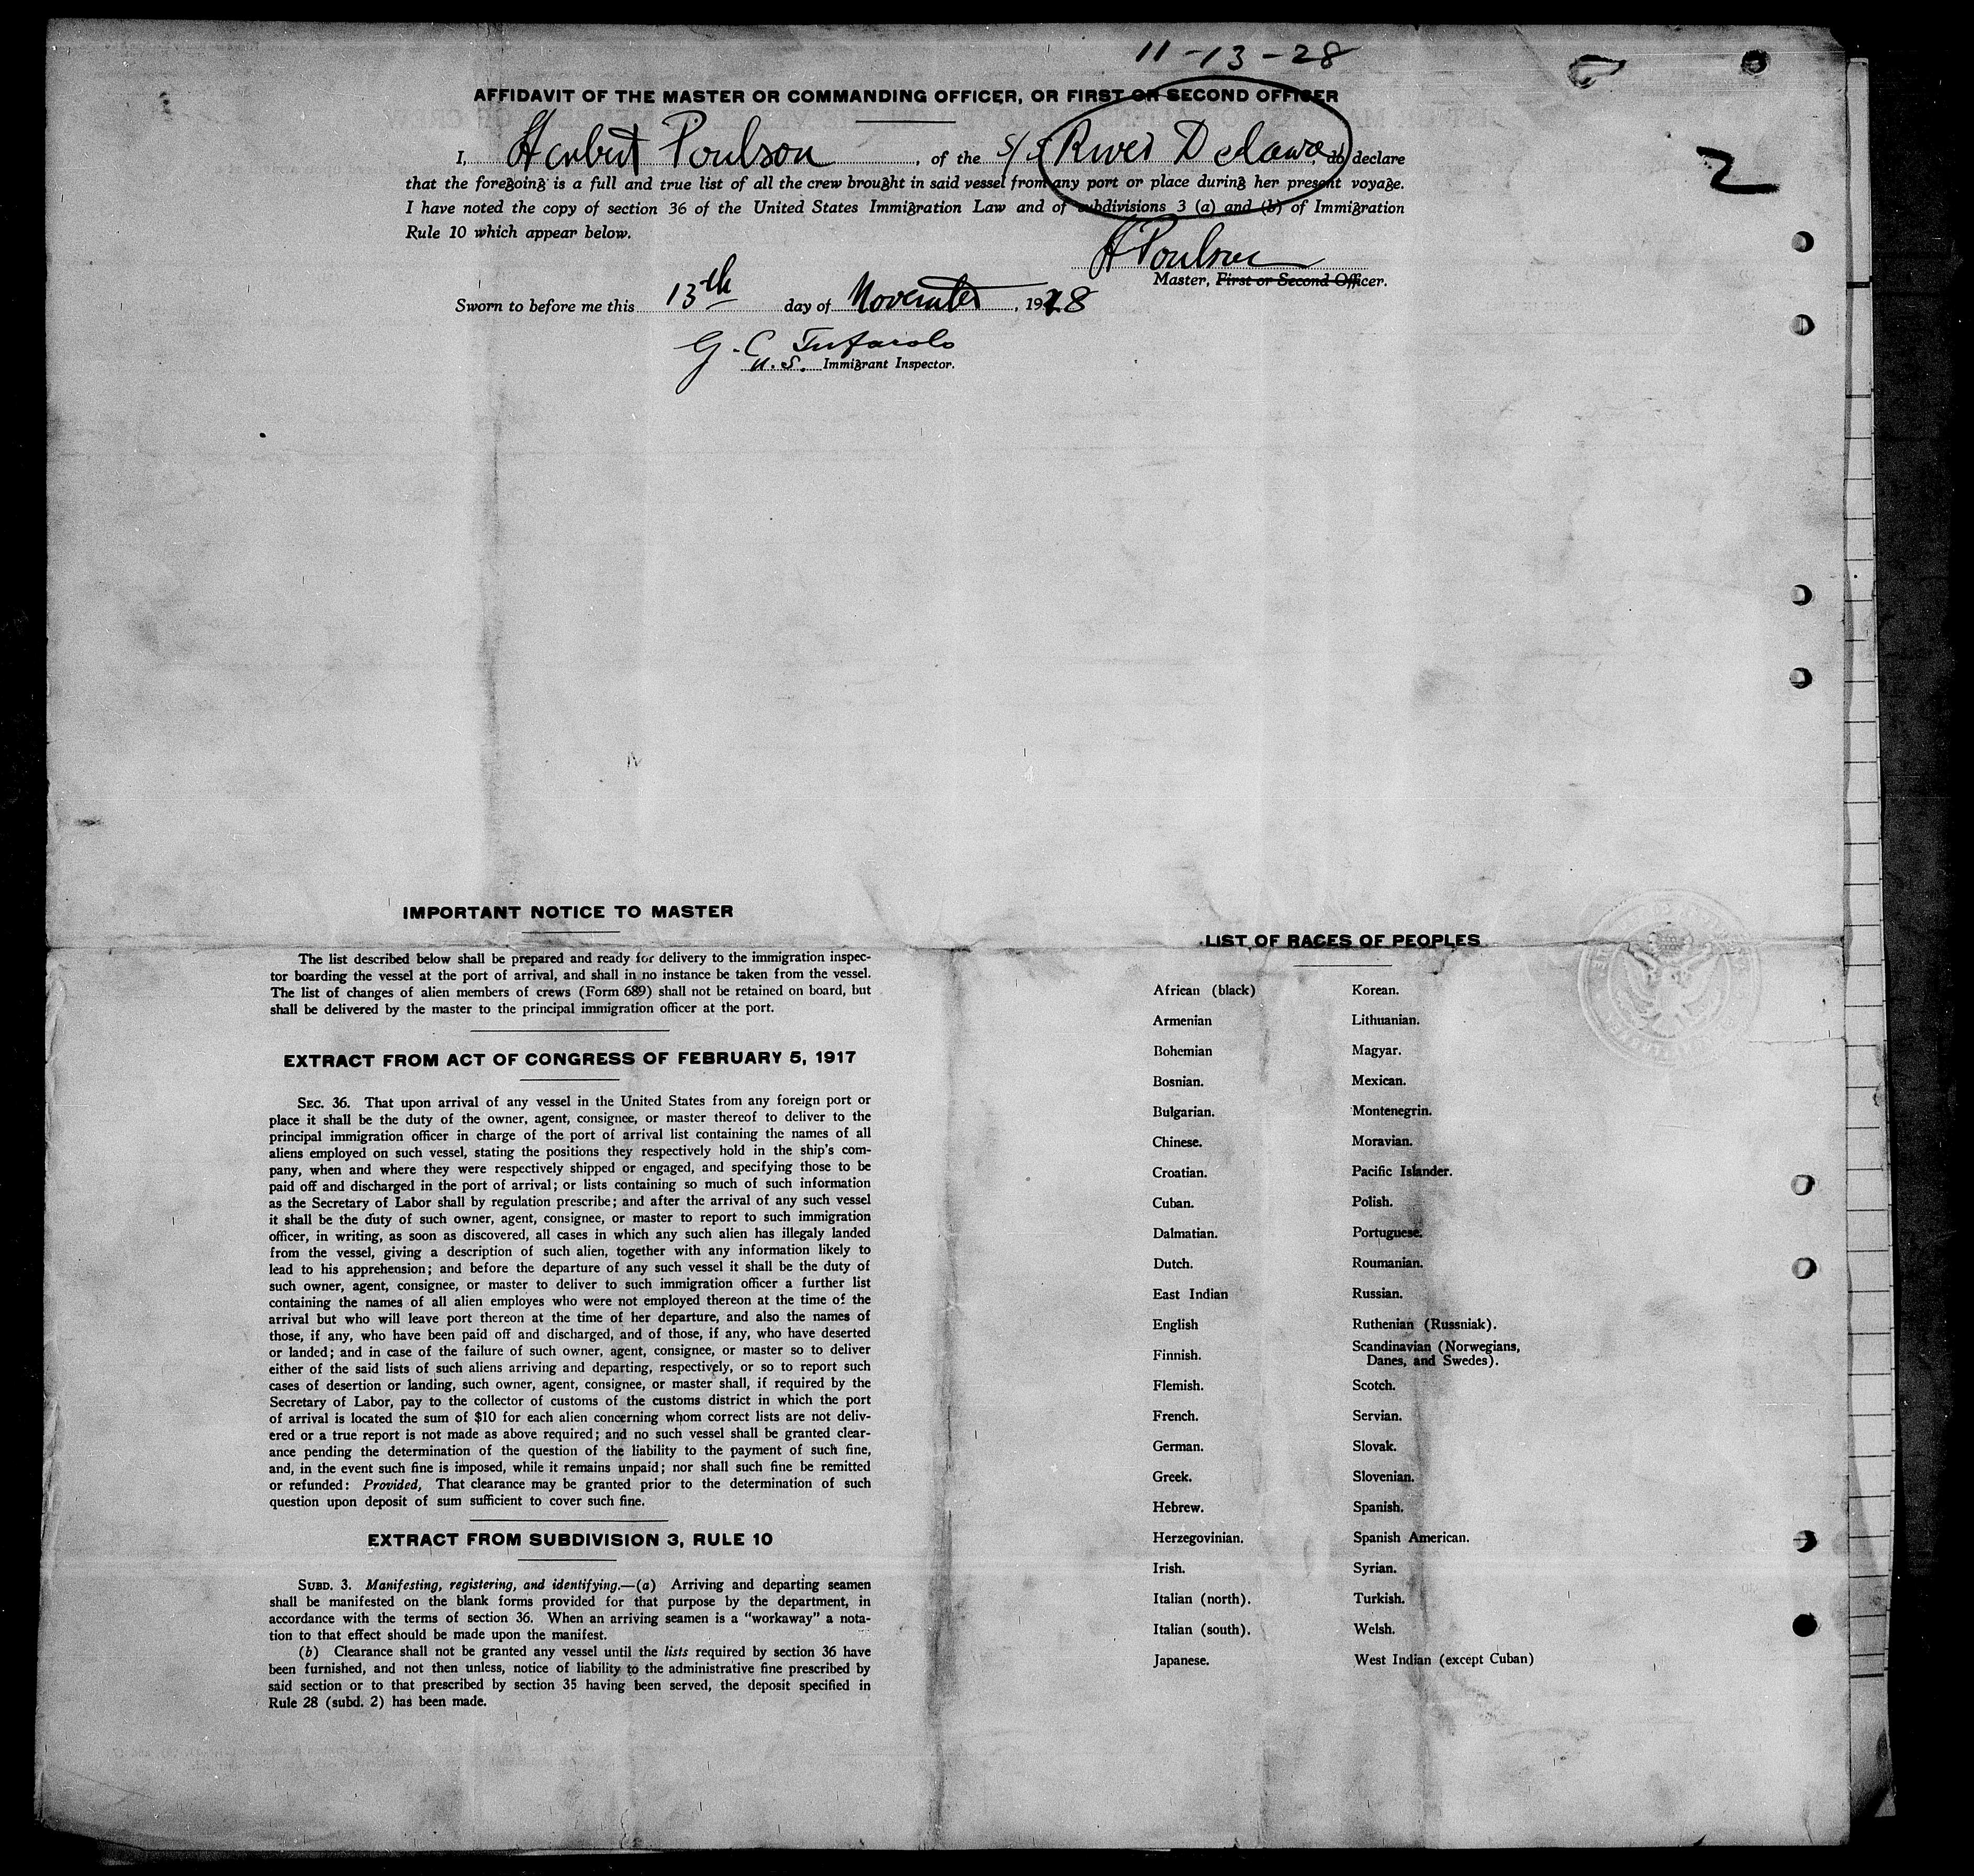 11-13-28
AFFIDAVIT OF THE MASTER OR COMMANDING OFFICER, OR FIRST OR SECOND OFFICER
I, Herbert Poulson, of the S/S River Delaware, do declare
that the foregoing is a full and true list of all the crew brought in said vessel from any port or place during her present voyage.
I have noted the copy of section 36 of the United States Immigration Law and of subdivisions 3 (a) and (b) of Immigration
Rule 10 which appear below.
2
H Poulson
Master, First or Second Officer.
Sworn to before me this 13th day of November, 1928
G. C.
U.S. Immigrant Inspector.
IMPORTANT NOTICE TO MASTER
The list described below shall be prepared and ready for delivery to the immigration inspec-
tor boarding the vessel at the port of arrival, and shall in no instance be taken from the vessel.
The list of changes of alien members of crews (Form 689) shall not be retained on board, but
shall be delivered by the master to the principal immigration officer at the port.
EXTRACT FROM ACT OF CONGRESS OF FEBRUARY 5, 1917
SEC. 36. That upon arrival of any vessel in the United States from any foreign port or
place it shall be the duty of the owner, agent, consignee, or master thereof to deliver to the
principal immigration officer in charge of the port of arrival list containing the names of all
aliens employed on such vessel, stating the positions they respectively hold in the ship's com-
pany, when and where they were respectively shipped or engaged, and specifying those to be
paid off and discharged in the port of arrival; or lists containing so much of such information
as the Secretary of Labor shall by regulation prescribe; and after the arrival of any such vessel
it shall be the duty of such owner, agent, consignee, or master to report to such immigration
officer, in writing, as soon as discovered, all cases in which any such alien has illegally landed
from the vessel, giving a description of such alien, together with any information likely to
lead to his apprehension; and before the departure of any such vessel it shall be the duty of
such owner, agent, consignee, or master to deliver to such immigration officer a further list
containing the names of all alien employes who were not employed thereon at the time of the
arrival but who will leave port thereon at the time of her departure, and also the names of
those, if any, who have been paid off and discharged, and of those, if any, who have deserted
or landed; and in case of the failure of such owner, agent, consignee, or master so to deliver
either of the said lists of such aliens arriving and departing, respectively, or so to report such
cases of desertion or landing, such owner, agent, consignee, or master shall, if required by the
Secretary of Labor, pay to the collector of customs of the customs district in which the port
of arrival is located the sum of $10 for each alien concerning whom correct lists are not deliv-
ered or a true report is not made as above required; and no such vessel shall be granted clear-
ance pending the determination of the question of the liability to the payment of such fine,
and, in the event such fine is imposed, while it remains unpaid; nor shall such fine be remitted
or refunded: Provided, That clearance may be granted prior to the determination of such
question upon deposit of sum sufficient to cover such fine.
EXTRACT FROM SUBDIVISION 3, RULE 10
SUBD. 3. Manifesting, registering, and identifying.—(a) Arriving and departing seamen
shall be manifested on the blank forms provided for that purpose by the department, in
accordance with the terms of section 36. When an arriving seamen is a "workaway" a nota-
tion to that effect should be made upon the manifest.
(b) Clearance shall not be granted any vessel until the lists required by section 36 have
been furnished, and not then unless, notice of liability to the administrative fine prescribed by
said section or to that prescribed by section 35 having been served, the deposit specified in
Rule 28 (subd. 2) has been made.
LIST OF RACES OF PEOPLES
African (black)
Armenian
Bohemian
Bosnian.
Bulgarian.
Chinese.
Croatian.
Cuban.
Dalmatian.
Dutch.
East Indian
English
Finnish.
Flemish.
French.
German.
Greek.
Hebrew.
Herzegovinian.
Irish.
Italian (north).
Italian (south).
Japanese.
Korean.
Lithuanian.
Magyar.
Mexican.
Montenegrin.
Moravian.
Pacific Islander.
Polish.
Portuguese.
Roumanian.
Russian.
Ruthenian (Russniak).
Scandinavian (Norwegians,
Danes, and Swedes).
Scotch.
Servian.
Slovak.
Slovenian.
Spanish.
Spanish American.
Syrian.
Turkish.
Welsh.
West Indian (except Cuban)